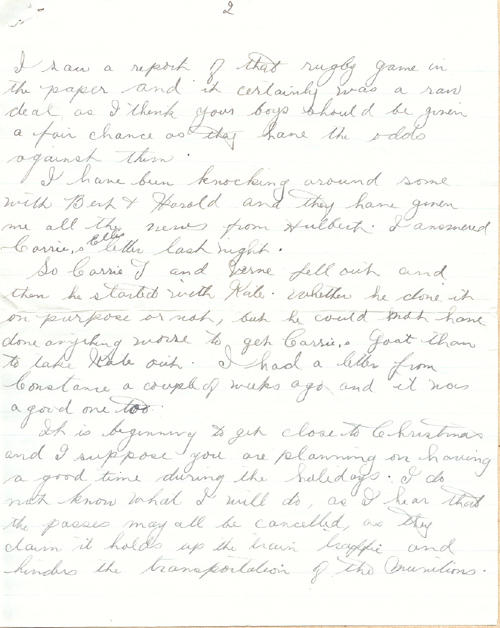 2
I saw a report of that rugby game in
the paper and it certainly was a raw
deal as I think your boys should be given
a fair chance as they have the odds
against them.
I have been knocking around some
with Bert & Harold and they have given
me all the news from Hulbert. I answered
Carrie,s Ellis letter last night.
So Carrie J and Verne fell out and
then he started with Kate. Whether he done it
on purpose or not, but he could not have
done anything worse to get Carrie,s Goat than
to take Kate out. I had a letter from
Constance a couple of weeks ago and it was
a good one too.
It is beginning to get close to Christmas
and I suppose you are planning on having
a good time during the holidays. I do
not know what I will do, as I hear that
the passes may all be cancelled, as they
claim it holds up the train traffic and
hinders the transportation of the Munitions.